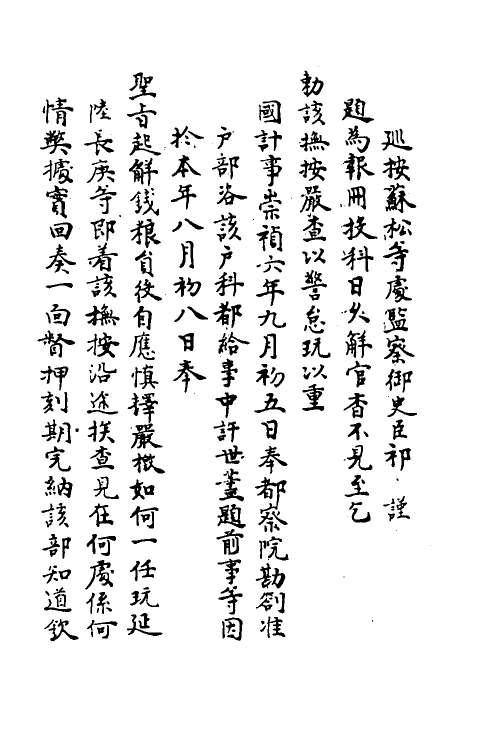 廵按蘇松等處監察御史臣祁 謹
題為報冊投科日久解官杳不見至乞
勅該撫按嚴查以警怠玩以重
國計事崇禎六年九月初五日奉都察院勘劄准
户部咨該户科都給事中許世藎題前事等因
於本年八月初八日奉
聖旨起解錢粮負役自應慎擇嚴檄如何一任玩延
陸長庚等即着該撫按沿途挨查見在何處係何
情獘據實回奏一面督押刻期完納該部知道欽